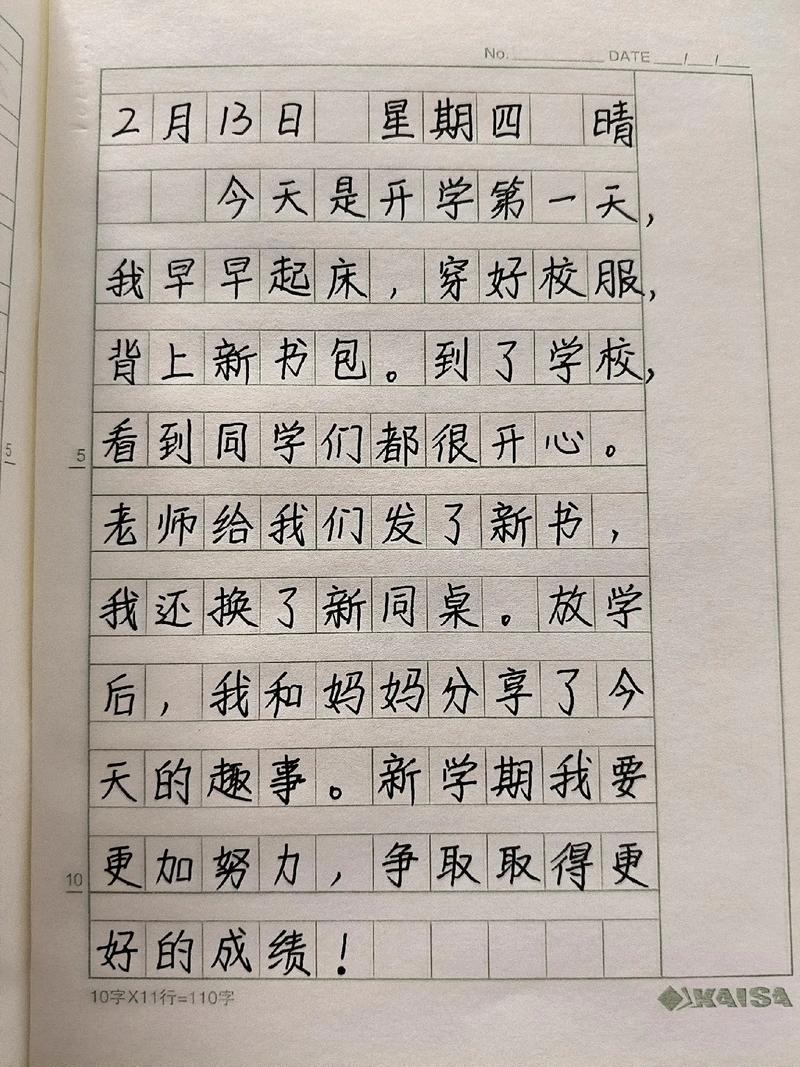 No. DATE / /
2月13日 星期四 晴
今天是开学第一天，
我早早起床，穿好校服，
背上新书包。到了学校，
看到同学们都很开心。
5
5
老师给我们发了新书，
我还换了新同桌。放学
后，我和妈妈分享了今
天的趣事。新学期我要
更加努力，争取取得更
10
好的成绩！
10字X11行=110字
KAISA